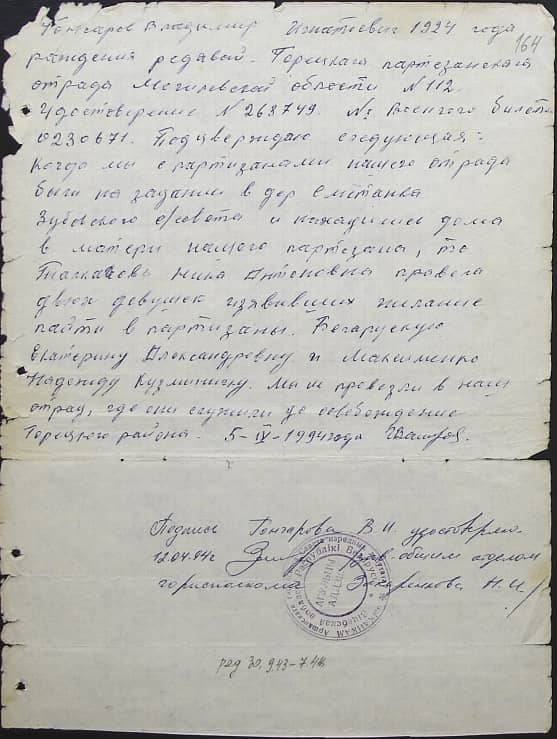 164
Гончаров Владимир Игнатиевич 1924 года
рождения рядовой. Горецкага партезанскага
атрада Могилевской области N 112.
Удостоверение N 268749. №: Военого билета
0230671. Подтверждаю следующая:
Когда мы с партизанами нашого отрада
были на задании в дер Сметанка
Зубовского с/совета и находились дома
в матери нашого партезана, то
Нина Антоновна правела
двюх девушек изявивших желание
пайти в партизаны. Беларускую
Екатерину Александровну и Максименко
Надежду Кузминичну. Мы и провезли в наш
отрад, где они служили до освобождение
Горецкого района. 5-IV-1994 года
Подпись Гончарова В.И. удостоверяю.
12.04.94г общим отделом
горисполкома Н.И.
Рэспублікі Беларусь
АГУЛЬНЫ
АДДЗЕЛ
30.9.43-7.44